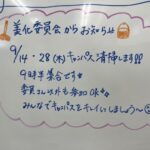 美化委員会からお知らせ
9/14・28(木)キャンパス清掃します!!!
9時半集合です
委員さん以外も参加OK
みんなでキャンパスをキレイにしましょう〜